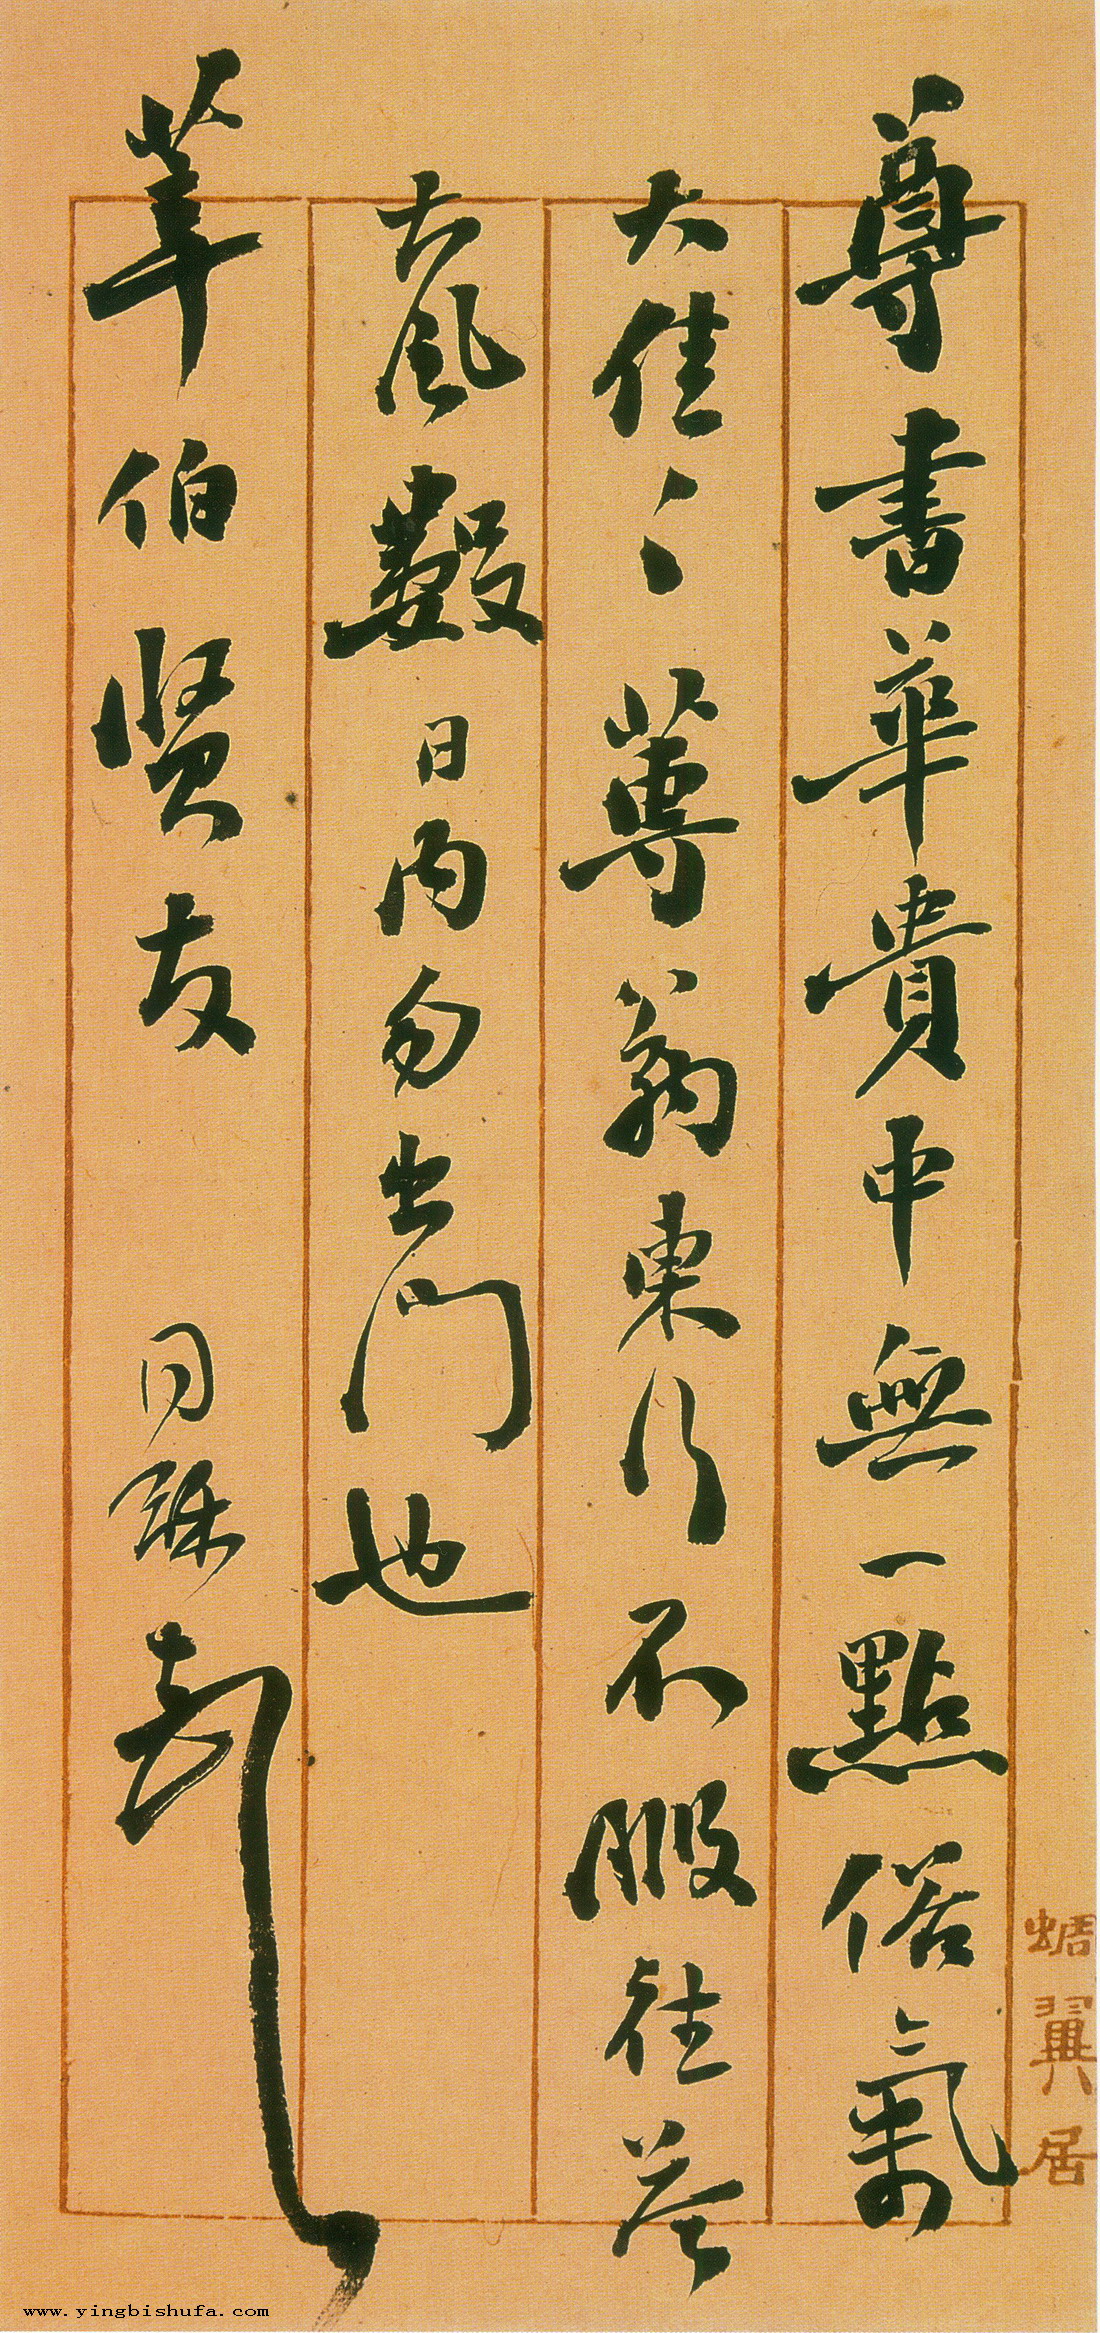 尊書華貴中無一點俗氣
大佳々蓴翁東行不暇往答
大風數日內勿出門也
莘伯賢友 同龢
蜩翼居
www.yingbishufa.com